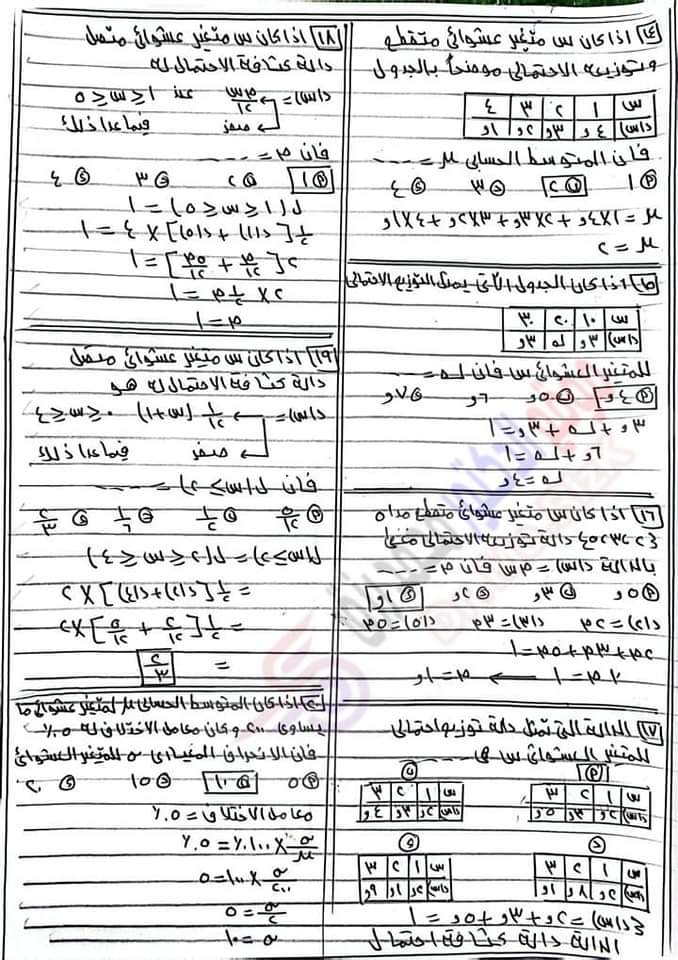 ١٤) اذا كان س متغير عشوائي متقطع
وتوزيعه الاحتمالي موضحاً بالجدول
س ١ ٢ ٣ ٤
د(س) ٤و ٣و ٢و ١و
فان المتوسط الحسابي μ = ----
Ⓟ ١ ⓑ ٢ ⓙ ٣ ⓓ ٤
μ = ١×٤و + ٢×٣و + ٣×٢و + ٤×١و
μ = ٢
١٥) اذا كان الجدول الآتي يمثل التوزيع الاحتمالي
س ١٠ ٢٠ ٣٠
د(س) ٣و ك ٣و
للمتغير العشوائي س فان ك = ----
٤و ٥و ٦و ٧و
٣و + ك + ٣و = ١
٦و + ك = ١
ك = ٤و
١٦) اذا كان س متغير عشوائي متقطع مداه
{٢،٣،٥} دالة توزيعه الاحتمالي معطى
بالدالة د(س) = م س فان م = ----
٥و ٣و ٢و ١و
د(٢) = ٢م د(٣) = ٣م د(٥) = ٥م
٢م + ٣م + ٥م = ١
١٠م = ١ ← م = ١و
١٧) الدالة التي تمثل دالة توزيع احتمالي
للمتغير العشوائي س هي
س ١ ٢ ٣
د(س) ٢و ٣و ٥و
س ١ ٢ ٣
د(س) ٢و ٣و ٤و
س ١ ٢ ٣
د(س) ٢و ٨و ١و
س ١ ٢ ٣
د(س) ٢و ١و ٩و
د(س) = ٢و + ٣و + ٥و = ١
الدالة دالة كثافة احتمال
١٨) اذا كان س متغير عشوائي متصل
دالة كثافة الاحتمال له
د(س) = م س/١٢ عند ١ ≤ س ≤ ٥
صفر فيما عدا ذلك
فان م = ----
١ ٢ ٣ ٤
ل(١ ≤ س ≤ ٥) = ١
١/٢ [د(١) + د(٥)] × ٤ = ١
٢ [م/١٢ + ٥م/١٢] = ١
٢ × ١/٢ م = ١
م = ١
١٩) اذا كان س متغير عشوائي متصل
دالة كثافة الاحتمال له هو
د(س) = ١/١٢ (س+١) ٠ ≤ س ≤ ٤
صفر فيما عدا ذلك
فان ل(س ≥ ٢) = ----
٥/١٢ ١/٢ ١/٦ ٢/٣
ل(س ≥ ٢) = ل(٢ ≤ س ≤ ٤)
= ١/٢ [د(٢) + د(٤)] × ٢
= ١/٢ [٣/١٢ + ٥/١٢] × ٢
= ٢/٣
٢٠) اذا كان المتوسط الحسابي μ لمتغير عشوائي ما
يساوي ٢٠٠ وكان معامل الاختلاف له ٥٪
فان الانحراف المعياري σ للمتغير العشوائي
٥ ١٠ ١٥ ٢٠
معامل الاختلاف = ٥٪
σ/μ × ١٠٠٪ = ٥٪
σ/٢٠٠ × ١٠٠ = ٥
σ/٢ = ٥
σ = ١٠